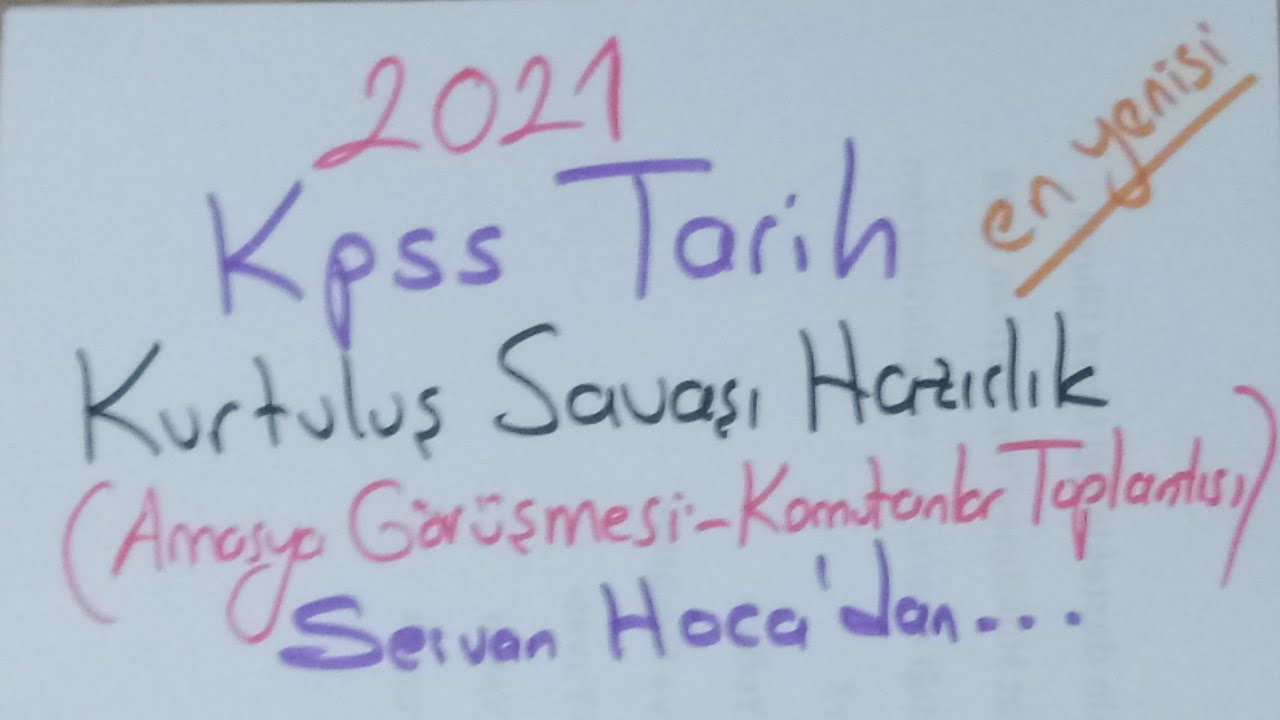 2021
Kpss Tarih
en yenisi
Kurtuluş Savaşı Hazırlık
(Amasya Görüşmesi-Komutanlar Toplantısı)
Servan Hoca'dan...